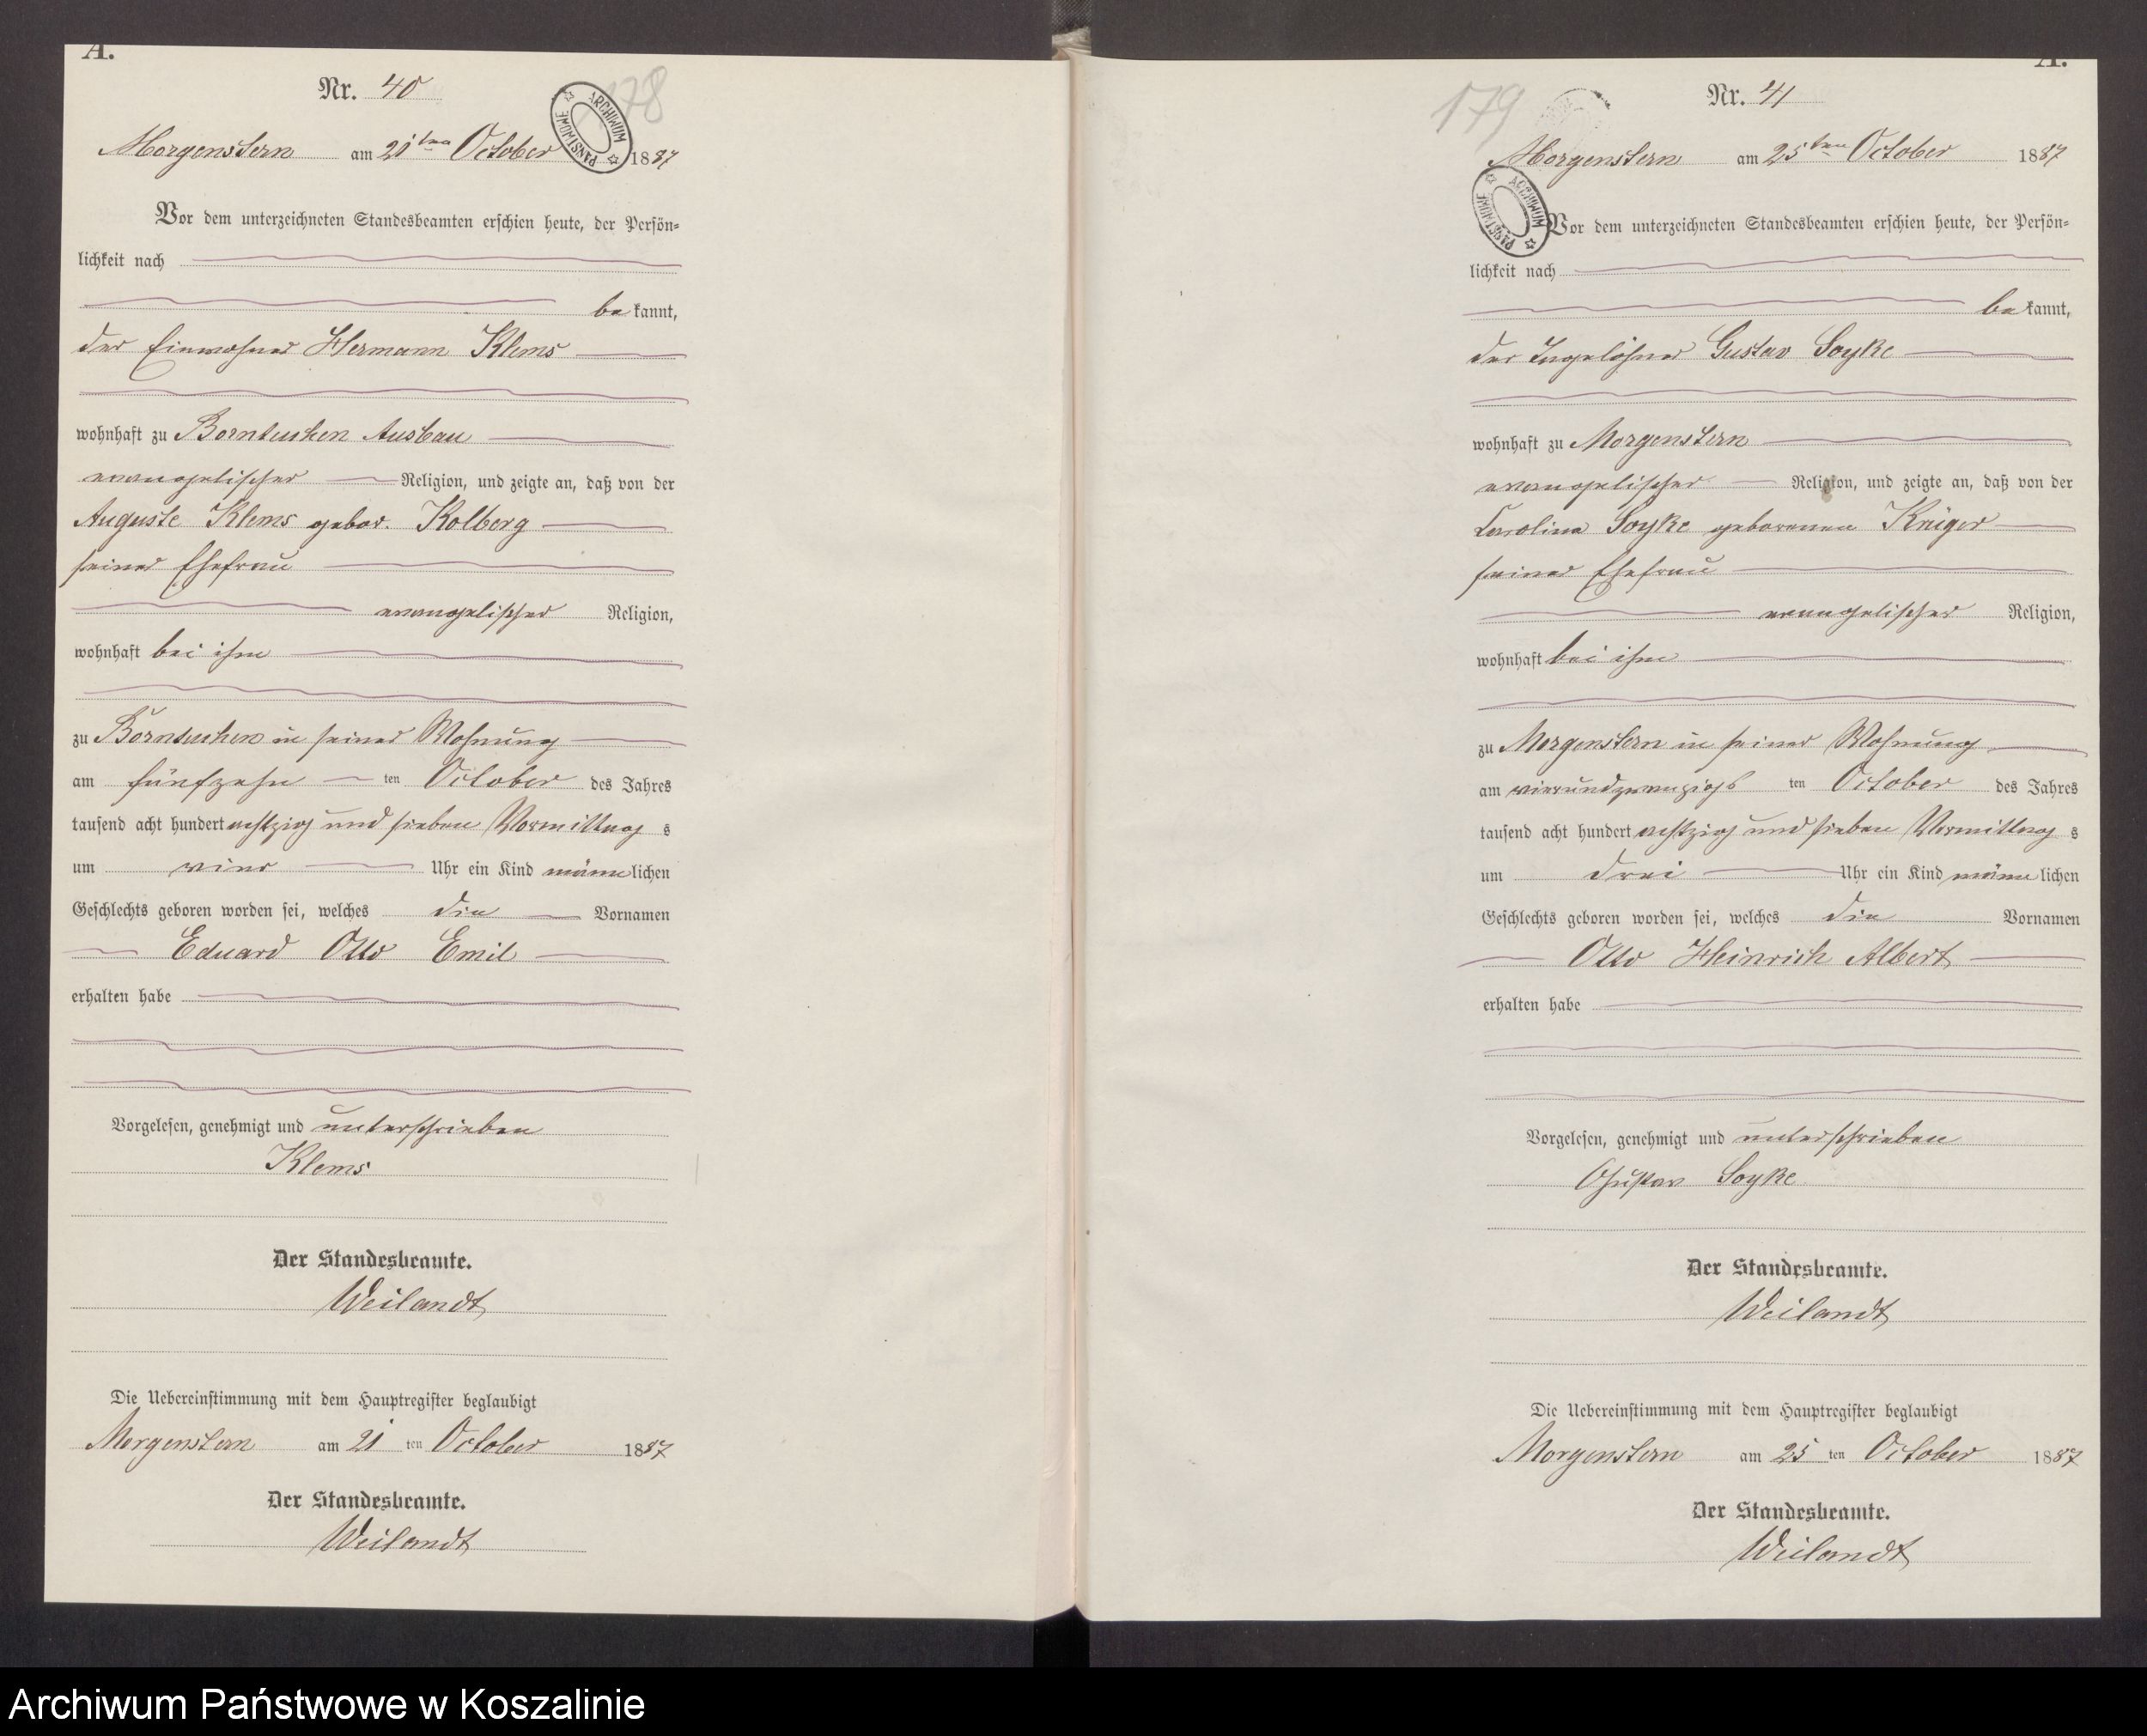 A.
Nr. 40
178
ARCHIWUM PAŃSTWOWE
Morgenstern am 21ten October 1887
Vor dem unterzeichneten Standesbeamten erschien heute, der Persön=
lichkeit nach
bekannt,
der Einwohner Hermann Klems
wohnhaft zu Borntuchen Ausbau
evangelischer Religion, und zeigte an, daß von der
Auguste Klems gebor. Kolberg
seiner Ehefrau
evangelischer Religion,
wohnhaft bei ihm
zu Borntuchen in seiner Wohnung
am fünfzehn ten October des Jahres
tausend acht hundert achtzig und sieben Vormittag s
um vier Uhr ein Kind männlichen
Geschlechts geboren worden sei, welches die Vornamen
Eduard Otto Emil
erhalten habe
Vorgelesen, genehmigt und unterschrieben
Klems
Der Standesbeamte.
Weilandt
Die Uebereinstimmung mit dem Hauptregister beglaubigt
Morgenstern am 21 ten October 1887
Der Standesbeamte.
Weilandt
A.
Nr. 41
179
Morgenstern am 25ten October 1887
ARCHIWUM PAŃSTWOWE
Vor dem unterzeichneten Standesbeamten erschien heute, der Persön=
lichkeit nach
bekannt,
der Tagelöhner Gustav Soyke
wohnhaft zu Morgenstern
evangelischer Religion, und zeigte an, daß von der
Caroline Soyke geborenen Krüger
seiner Ehefrau
evangelischer Religion,
wohnhaft bei ihm
zu Morgenstern in seiner Wohnung
am vierundzwanzigs ten October des Jahres
tausend acht hundert achtzig und sieben Vormittag s
um drei Uhr ein Kind männlichen
Geschlechts geboren worden sei, welches die Vornamen
Otto Heinrich Albert
erhalten habe
Vorgelesen, genehmigt und unterschrieben
Gustav Soyke
Der Standesbeamte.
Weilandt
Die Uebereinstimmung mit dem Hauptregister beglaubigt
Morgenstern am 25 ten October 1887
Der Standesbeamte.
Weilandt
Archiwum Państwowe w Koszalinie